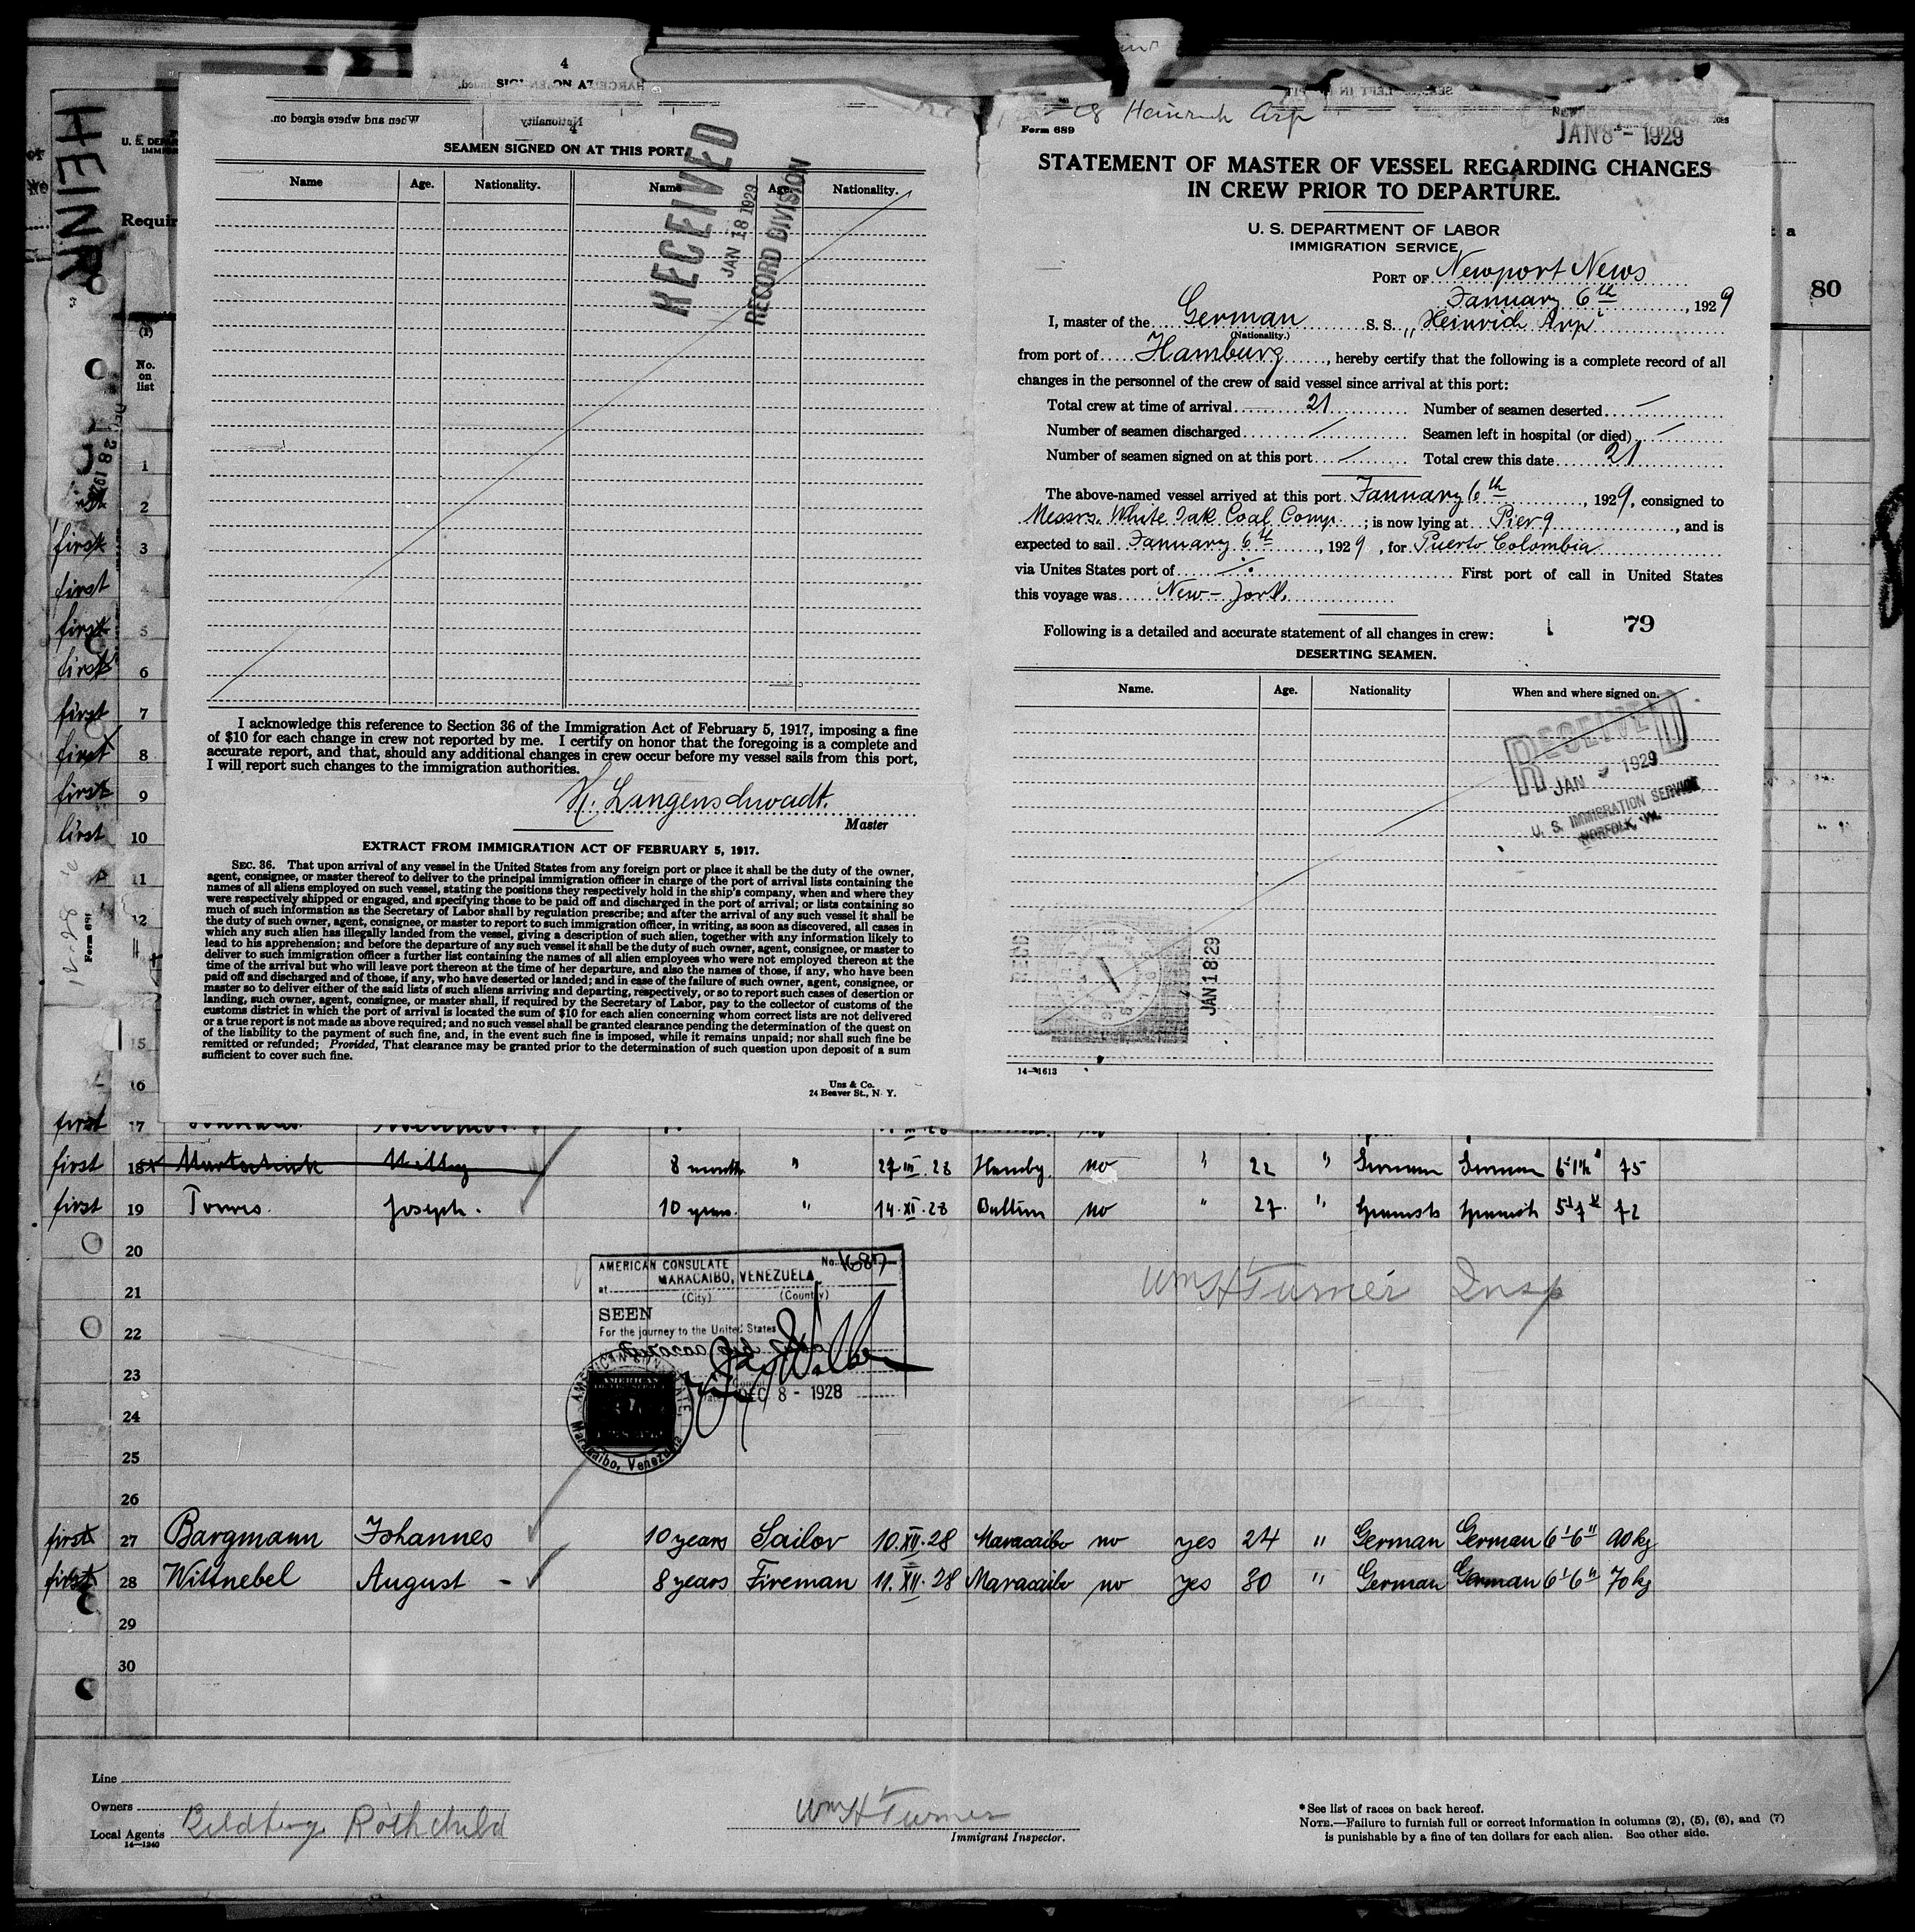 HEINR
4
When and where signed on.
Nationality
SEAMEN SIGNED ON AT THIS PORT.
Name Age. Nationality. Name Age. Nationality.
RECEIVED
JAN 18 1929
RECORD DIVISION
I acknowledge this reference to Section 36 of the Immigration Act of February 5, 1917, imposing a fine
of $10 for each change in crew not reported by me. I certify on honor that the foregoing is a complete and
accurate report, and that, should any additional changes in crew occur before my vessel sails from this port,
I will report such changes to the immigration authorities.
H. Langenschwadt.
Master
EXTRACT FROM IMMIGRATION ACT OF FEBRUARY 5, 1917.
SEC. 36. That upon arrival of any vessel in the United States from any foreign port or place it shall be the duty of the owner,
agent, consignee, or master thereof to deliver to the principal immigration officer in charge of the port of arrival lists containing the
names of all aliens employed on such vessel, stating the positions they respectively hold in the ship's company, when and where they
were respectively shipped or engaged, and specifying those to be paid off and discharged in the port of arrival; or lists containing so
much of such information as the Secretary of Labor shall by regulation prescribe; and after the arrival of any such vessel it shall be
the duty of such owner, agent, consignee, or master to report to such immigration officer, in writing, as soon as discovered, all cases in
which any such alien has illegally landed from the vessel, giving a description of such alien, together with any information likely to
lead to his apprehension; and before the departure of any such vessel it shall be the duty of such owner, agent, consignee, or master to
deliver to such immigration officer a further list containing the names of all alien employees who were not employed thereon at the
time of the arrival but who will leave port thereon at the time of her departure, and also the names of those, if any, who have been
paid off and discharged and of those, if any, who have deserted or landed; and in case of the failure of such owner, agent, consignee, or
master so to deliver either of the said lists of such aliens arriving and departing, respectively, or so to report such cases of desertion or
landing, such owner, agent, consignee, or master shall, if required by the Secretary of Labor, pay to the collector of customs of the
customs district in which the port of arrival is located the sum of $10 for each alien concerning whom correct lists are not delivered
or a true report is not made as above required; and no such vessel shall be granted clearance pending the determination of the quest on
of the liability to the payment of such fine, and, in the event such fine is imposed, while it remains unpaid; nor shall such fine be
remitted or refunded; Provided, That clearance may be granted prior to the determination of such question upon deposit of a sum
sufficient to cover such fine.
Uns & Co.
24 Beaver St., N. Y.
Heinrich Arp
Form 689
JAN 8 - 1929
STATEMENT OF MASTER OF VESSEL REGARDING CHANGES
IN CREW PRIOR TO DEPARTURE.
U. S. DEPARTMENT OF LABOR
IMMIGRATION SERVICE
PORT OF Newport News
January 6th, 1929
I, master of the German S. S. „Heinrich Arp"
(Nationality.)
from port of Hamburg, hereby certify that the following is a complete record of all
changes in the personnel of the crew of said vessel since arrival at this port:
Total crew at time of arrival 21 Number of seamen deserted /
Number of seamen discharged / Seamen left in hospital (or died) /
Number of seamen signed on at this port / Total crew this date 21
The above-named vessel arrived at this port January 6th, 1929, consigned to
Messrs. White Oak Coal Comp.; is now lying at Pier 9, and is
expected to sail January 6th, 1929, for Puerto Colombia
via Unites States port of First port of call in United States
this voyage was New-York.
79
Following is a detailed and accurate statement of all changes in crew:
DESERTING SEAMEN.
Name. Age. Nationality When and where signed on.
RECEIVED
JAN 1929
U. S. IMMIGRATION SERVICE
NORFOLK, VA.
JAN 18 29
14-1613
80
Requir
(1)
No.
on
list
1
2
first 3
first
first 5
first 6
first 7
first 8
first 9
first 10
11
12
Form 689
15
16
first 17
first 18 Willy 8 month " 27 III. 28 Hambg. no " 22 " German German 6'1½" 75
first 19 Torres. Joseph. 10 years. " 14. XI. 28 no " 27. " Spanish Spanish 72
20
21
22
23
24
25
26
AMERICAN CONSULATE No. 1687
at MARACAIBO, VENEZUELA
(City) (Country)
SEEN
For the journey to the United States
DEC 8 - 1928
Maracaibo, Venezuela
Wm H Turner Insp
first 27 Bargmann Johannes 10 years Sailor 10. XII. 28 Maracaibo no yes 24 " German German 6'6" 90 kg
first 28 Wittnebel August - 8 years Fireman 11. XII. 28 Maracaibo no yes 30 " German German 6'6" 70 kg
29
30
Line
Owners
Local Agents Rothchild
14-1240
Wm H Turner
Immigrant Inspector.
* See list of races on back hereof.
NOTE.—Failure to furnish full or correct information in columns (2), (5), (6), and (7)
is punishable by a fine of ten dollars for each alien. See other side.